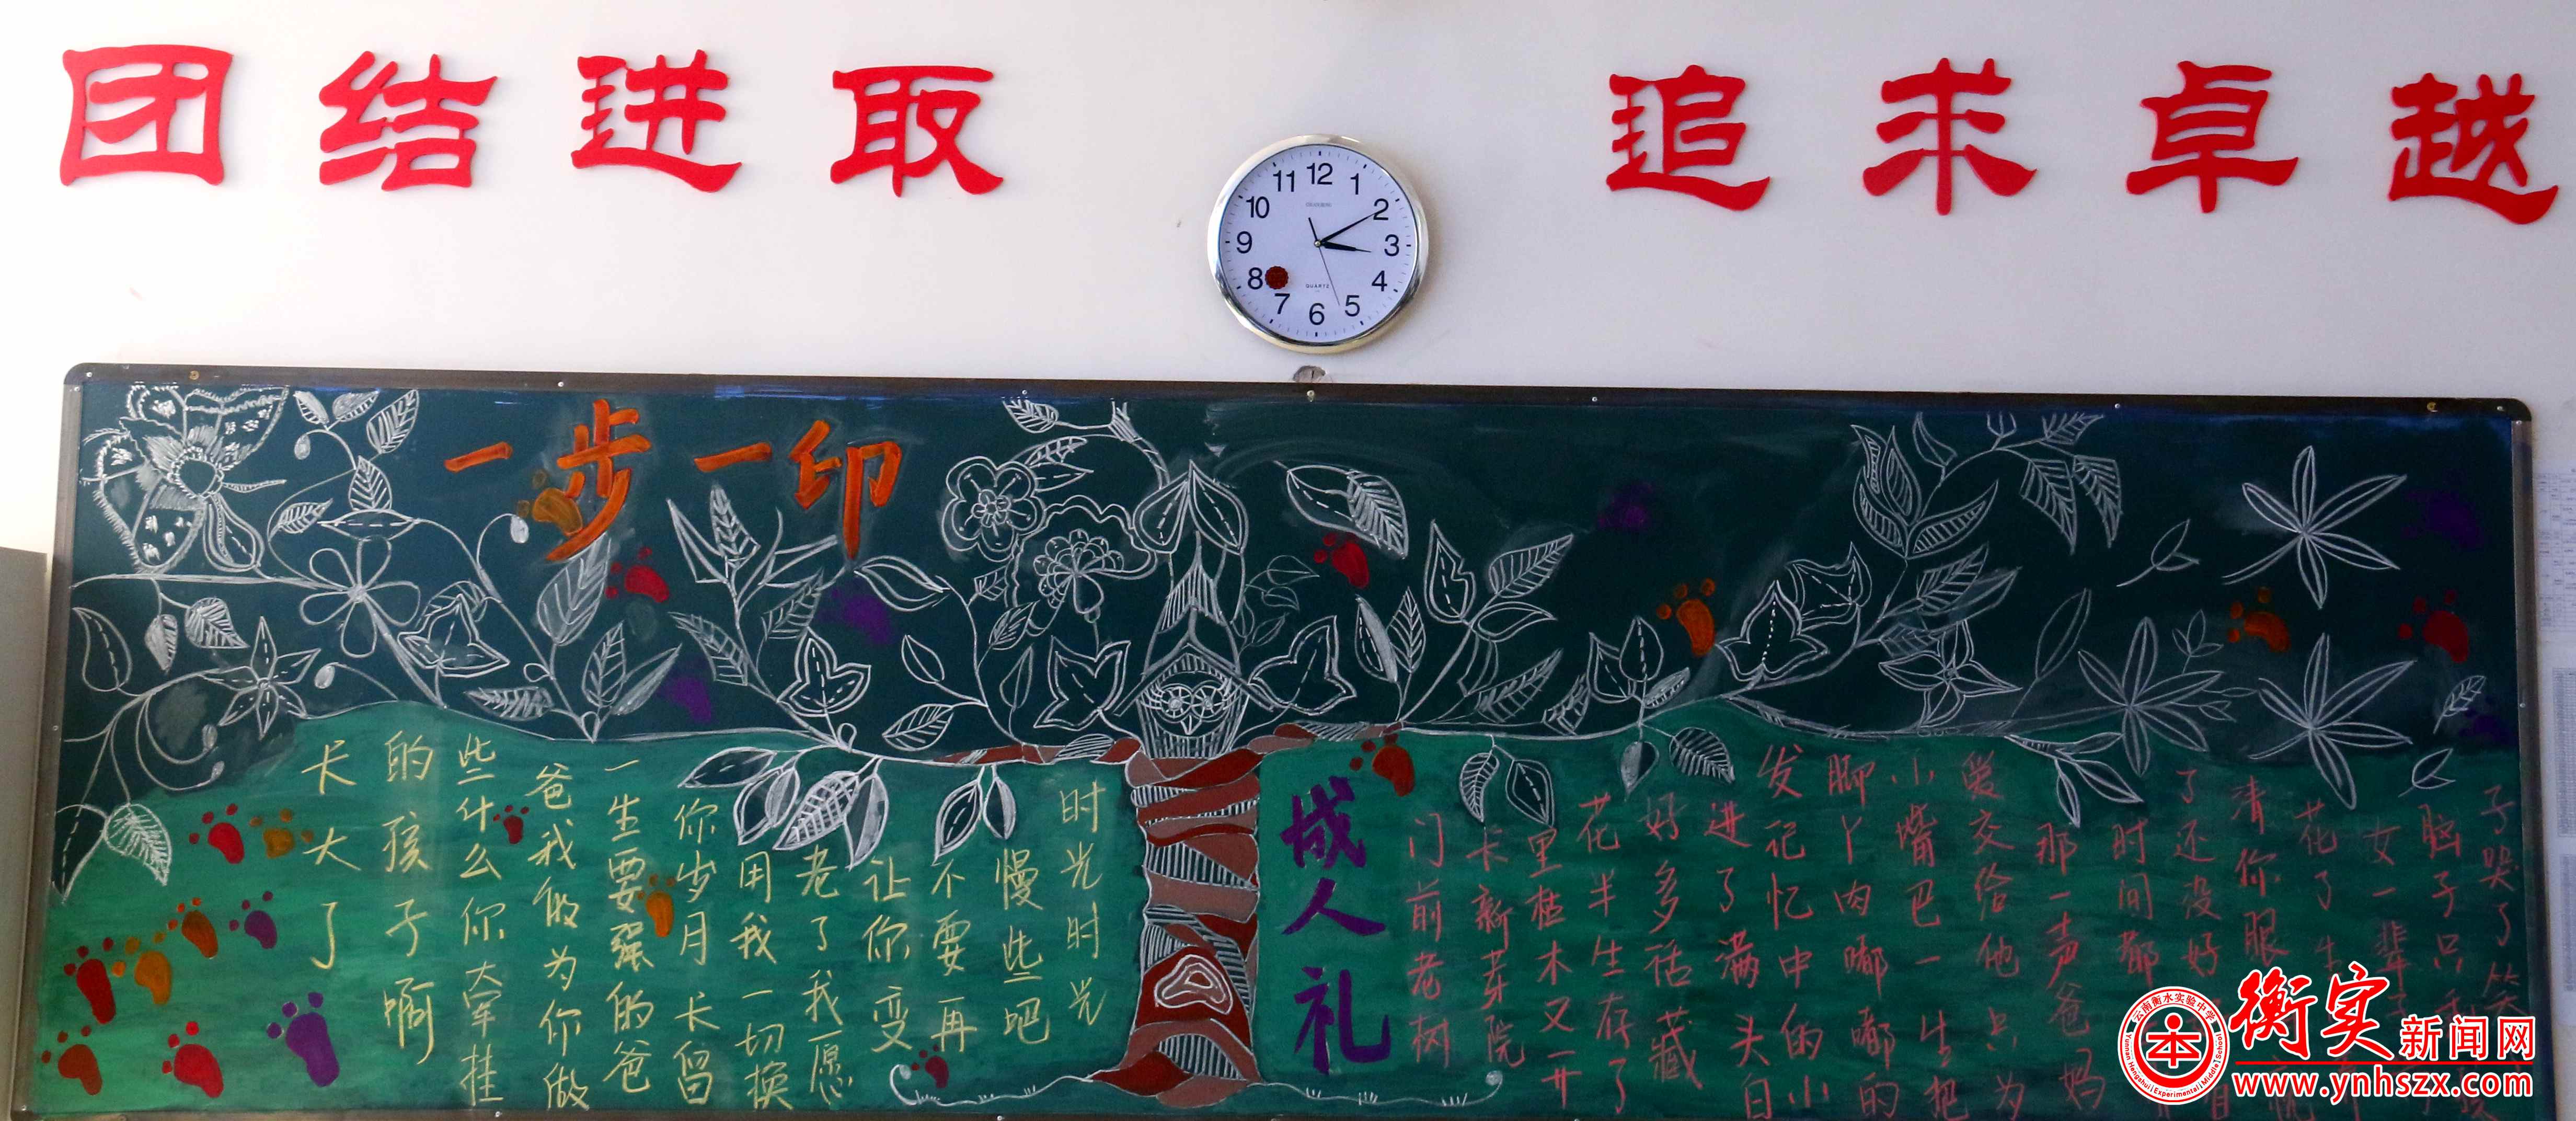 团结进取
追求卓越
12
1
2
3
4
5
6
7
8
9
10
11
QUARTZ
一步一印
时光时光
慢些吧
不要再
让你变
老了我愿
用我一切换
你岁月长留
一生要强的爸
爸我能为你做
些什么你牵挂
的孩子啊
长大了
成人礼
门前老树
长新芽院
里枯木又开
花半生存了
好多话藏
进了满头白
发记忆中的小
脚丫肉嘟嘟的
小嘴巴一生把
爱交给他只为
那一声爸妈
时间都
了还没好
清你眼
花了
女一辈
脑子只
子哭了笑
云南衡水实验中学
Yunnan Hengshui Experimental Middle School
衡实新闻网
www.ynhszx.com